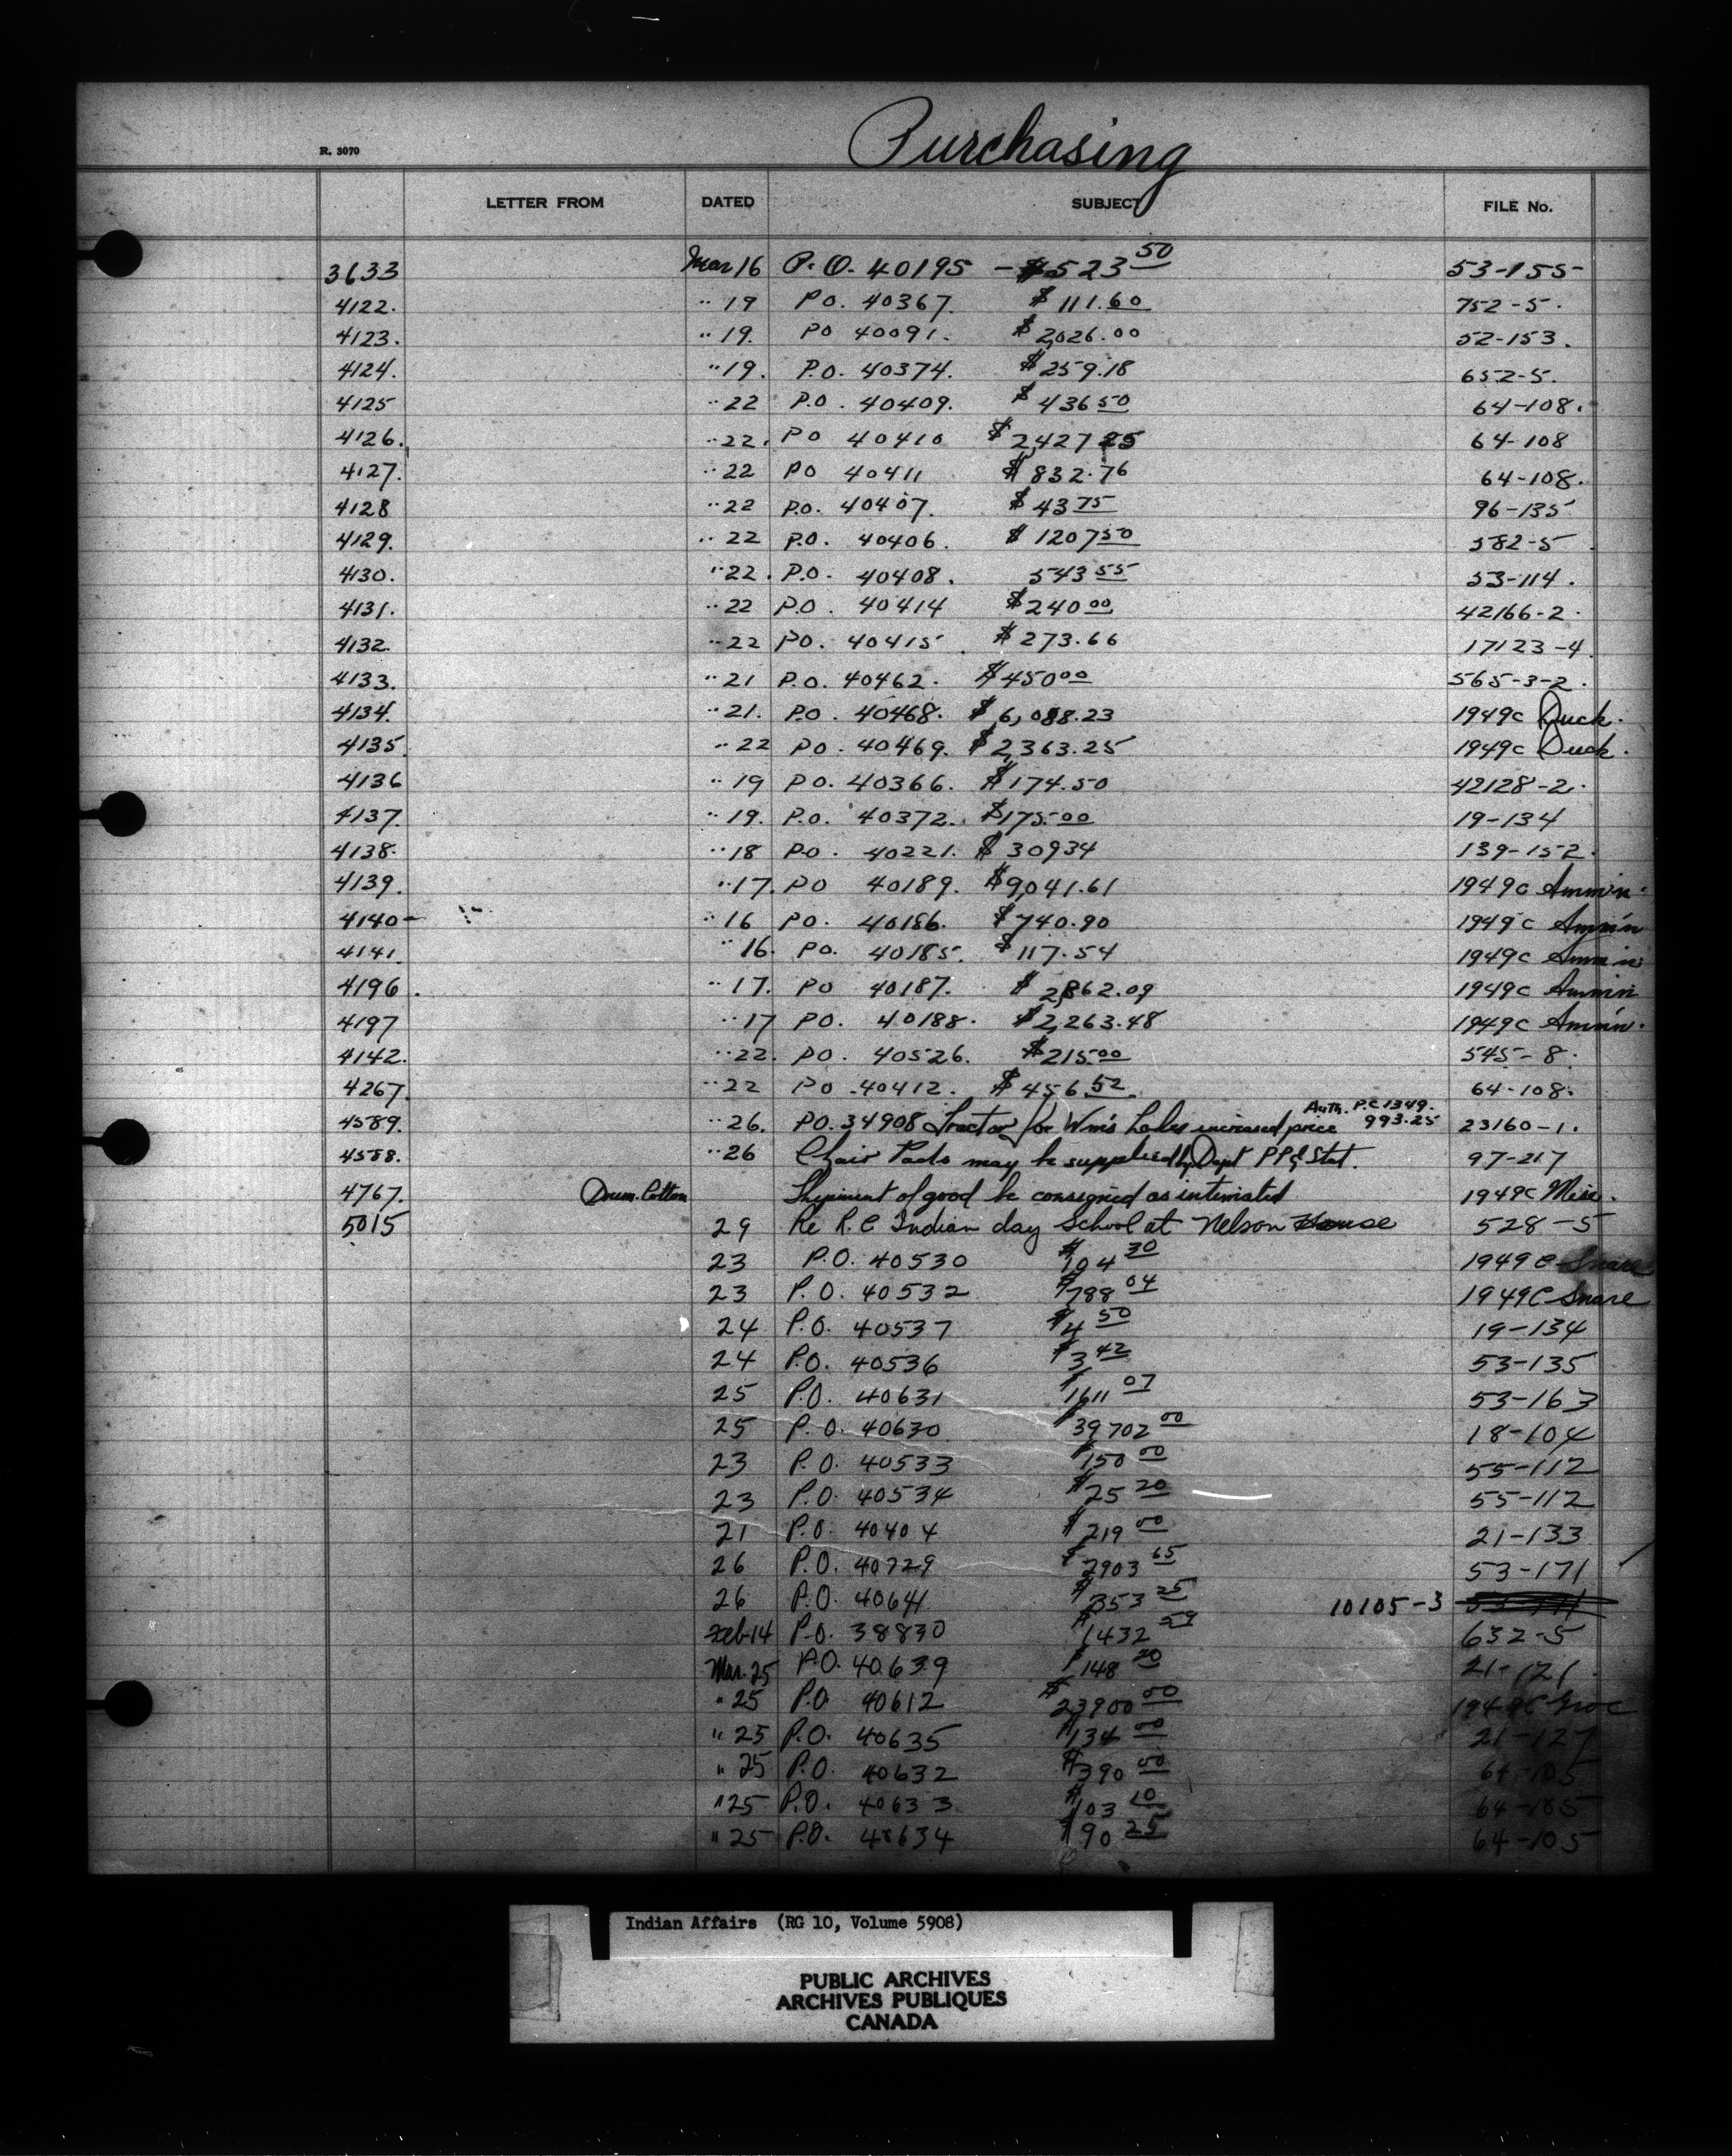 Purchasing
R. 3070
LETTER FROM DATED SUBJECT FILE No.
3633 Mar 16 P.O. 40195 - $523 50 53-155
4122. " 19 PO. 40367. $111.60 752-5.
4123. " 19. PO 40091. $2,026.00 52-153.
4124. " 19. P.O. 40374. $259.18 652-5.
4125 " 22 P.O. 40409. $436 50 64-108.
4126. " 22. PO 40410 $2,427 25 64-108
4127. " 22 PO 40411 $832.76 64-108.
4128 " 22 P.O. 40407. $43 75 96-135
4129. " 22 P.O. 40406. $1207 50 582-5
4130. " 22. P.O. 40408. 543 55 53-114.
4131. " 22 P.O. 40414 $240 00 42166-2.
4132. " 22 PO. 40415. $273.66 17123-4.
4133. " 21 P.O. 40462. $450 00 565-3-2.
4134. " 21. P.O. 40468. $6,088.23 1949c Duck.
4135. " 22 PO. 40469. $2,363.25 1949c Duck.
4136 " 19 PO. 40366. $174.50 42128-2.
4137. " 19. P.O. 40372. $175.00 19-134
4138. " 18 P.O. 40221. $30934 139-152.
4139. " 17. PO 40189. $9,041.61 1949c Amm'n.
4140- " 16 PO. 40186. $740.90 1949c Amm'n
4141. " 16. PO. 40185. $117.54 1949c Amm'n
4196. " 17. PO 40187. $2,862.09 1949c Amm'n
4197 " 17 PO. 40188. $2,263.48 1949c Amm'n.
4142. " 22. PO. 40526. $215 00 545-8.
4267. " 22 PO. 40412. $456.52 64-108.
Auth. P.C 1349.
4589. " 26. PO. 34908 Tractor for Wm's Lake increased price 993.25 23160-1.
4588. " 26 Chair Pads may be supplied by Dept PP & Stat. 97-217
4767. Dom. Cotton Shipment of good be consigned as intimated 1949c Misc.
5015 29 Re R.C Indian day School at Nelson House 528-5
23 P.O. 40530 $104 30 1949 C Snare
23 P.O. 40532 $788 04 1949C Snare
24 P.O. 40537 $4 50 19-134
24 P.O. 40536 $3 42 53-135
25 P.O. 40631 $1611 07 53-163
25 P.O. 40630 $39702 00 18-104
23 P.O. 40533 $150 00 55-112
23 P.O. 40534 $25 20 55-112
21 P.O. 40404 $219 00 21-133
26 P.O. 40729 $2903 65 53-171
26 P.O. 40641 $353 25 10105-3
Feb 14 P.O. 38830 $1432 59 632-5
Mar. 25 P.O. 40639 $148 20 21-121.
" 25 P.O. 40612 $23900 00 1949C Groc
" 25 P.O. 40635 $134 00 21-127
" 25 P.O. 40632 $390 00 64-105
" 25 P.O. 40633 $103 10 64-105
" 25 P.O. 40634 $90 25 64-105
Indian Affairs (RG 10, Volume 5908)
PUBLIC ARCHIVES
ARCHIVES PUBLIQUES
CANADA